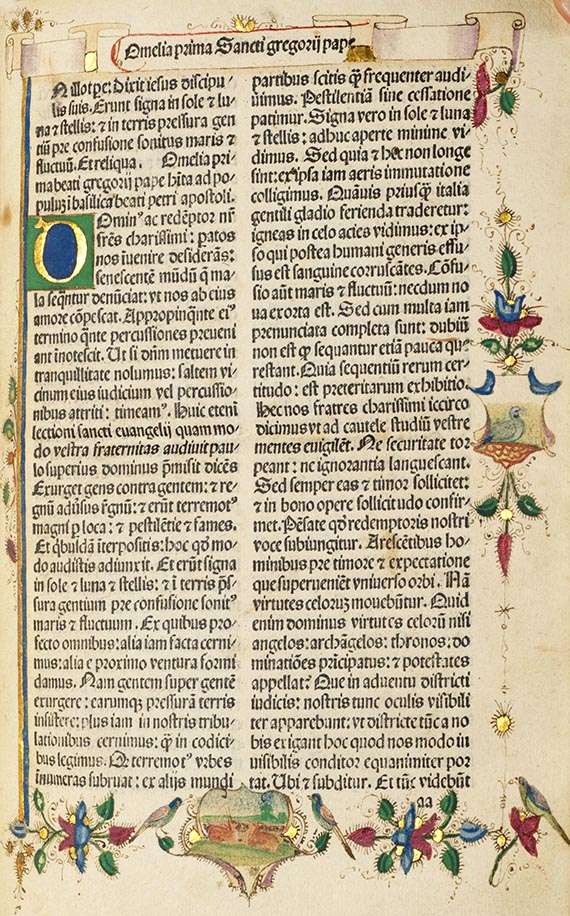 Omelia prima Sancti gregorij pape
N illo tpe: Dixit iesus discipu⸗
lis suis. Erunt signa in sole ⁊ lu⸗
na ⁊ stellis: ⁊ in terris pressura gen
tiū pre confusione sonitus maris ⁊
fluctuū. Et reliqua. Omelia pri⸗
ma beati gregorij pape hīta ad po⸗
pulū in basilica beati petri apostoli.
Omin⁹ ac redēptor nr̄
fr̄es charissimi: patos
nos iuenire desiderās:
senescentē mūdū q̄ ma⸗
la seqn̄tur denūciat: vt nos ab eius
amore cōpescat. Appropinqn̄te ei⁹
termino qn̄te percussiones preveni
ant īnotescit. Ut si dn̄m metuere in
tranquillitate nolumus: saltem vi⸗
cinum eius iudicium vel percussio⸗
nibus attriti: timeam⁹. Huic etenī
lectioni sancti euangelij quam mo⸗
do vestra fraternitas audiuit pau⸗
lo superius dominus p̄misit dicēs
Exurget gens contra gentem: ⁊ re⸗
gnū aduſus r̄gnū: ⁊ erūt terremot⁹
magni p loca: ⁊ pestilētie ⁊ fames.
Et q̄buſdā īterpositis: hoc qđ mo⸗
do audistis adiunxit. Et erūt signa
in sole ⁊ luna ⁊ stellis: ⁊ ī terris p̄s⸗
sura gentium pre confusione sonit⁹
maris ⁊ fluctuum. Ex quibus pro⸗
fecto omnibus: alia iam facta cerni⸗
mus: alia e proximo ventura formi
damus. Nam gentem super gentē
exurgere: earumque pressurā terris
insistere: plus iam in nostris tribu⸗
lationibus cernimus: q̄ in codici⸗
bus legimus. Qr terremot⁹ vrbes
inumeras subruat: ex alijs mundi
partibus scitis q̄ frequenter audi
uimus. Pestilentiā sine cessatione
patimur. Signa vero in sole ⁊ luna
⁊ stellis: adhuc aperte minime vi⸗
dimus. Sed quia ⁊ hec non longe
sint: ex ipsa iam aeris immutatione
colligimus. Quāuis priusq̄ italia
gentili gladio ferienda traderetur:
igneas in celo acies vidimus: ex ip⸗
so qui postea humani generis effu⸗
sus est sanguine corruscātes. Cōfu⸗
sio aūt maris ⁊ fluctuū: necdum no
ua exorta est. Sed cum multa iam
prenunciata completa sunt: dubiū
non est q̄ sequantur etiā pauca qu⸗
restant. Quia sequentiū rerum cer⸗
titudo: est preteritarum exhibitio.
Hec nos fratres charissimi iccirco
dicimus vt ad cautele studiū vestre
mentes euigilēt. Ne securitate tor⸗
peant: ne ignorantia languescant.
Sed semper eas ⁊ timor sollicitet:
⁊ in bono opere sollicitudo confir⸗
met. Pēsate qđ redemptoris nostri
voce subiungitur. Arescētibus ho⸗
minibus pre timore ⁊ expectatione
que superueniēt vniuerso orbi. Nā
virtutes celoruȝ mouebūtur. Quid
enim dominus virtutes celorū nisi
angelos: archāgelos: thronos: do
minatiōes prīcipatus: ⁊ potestates
appellat? Que in aduentu districti
iudicis: nostris tunc oculis visibili
ter apparebunt: vt districte tūc a no
bis exigant hoc quod nos modo in
uisibilis conditor equanimiter por
tat. Ubi ⁊ subditur. Et tūc videbūt
aa